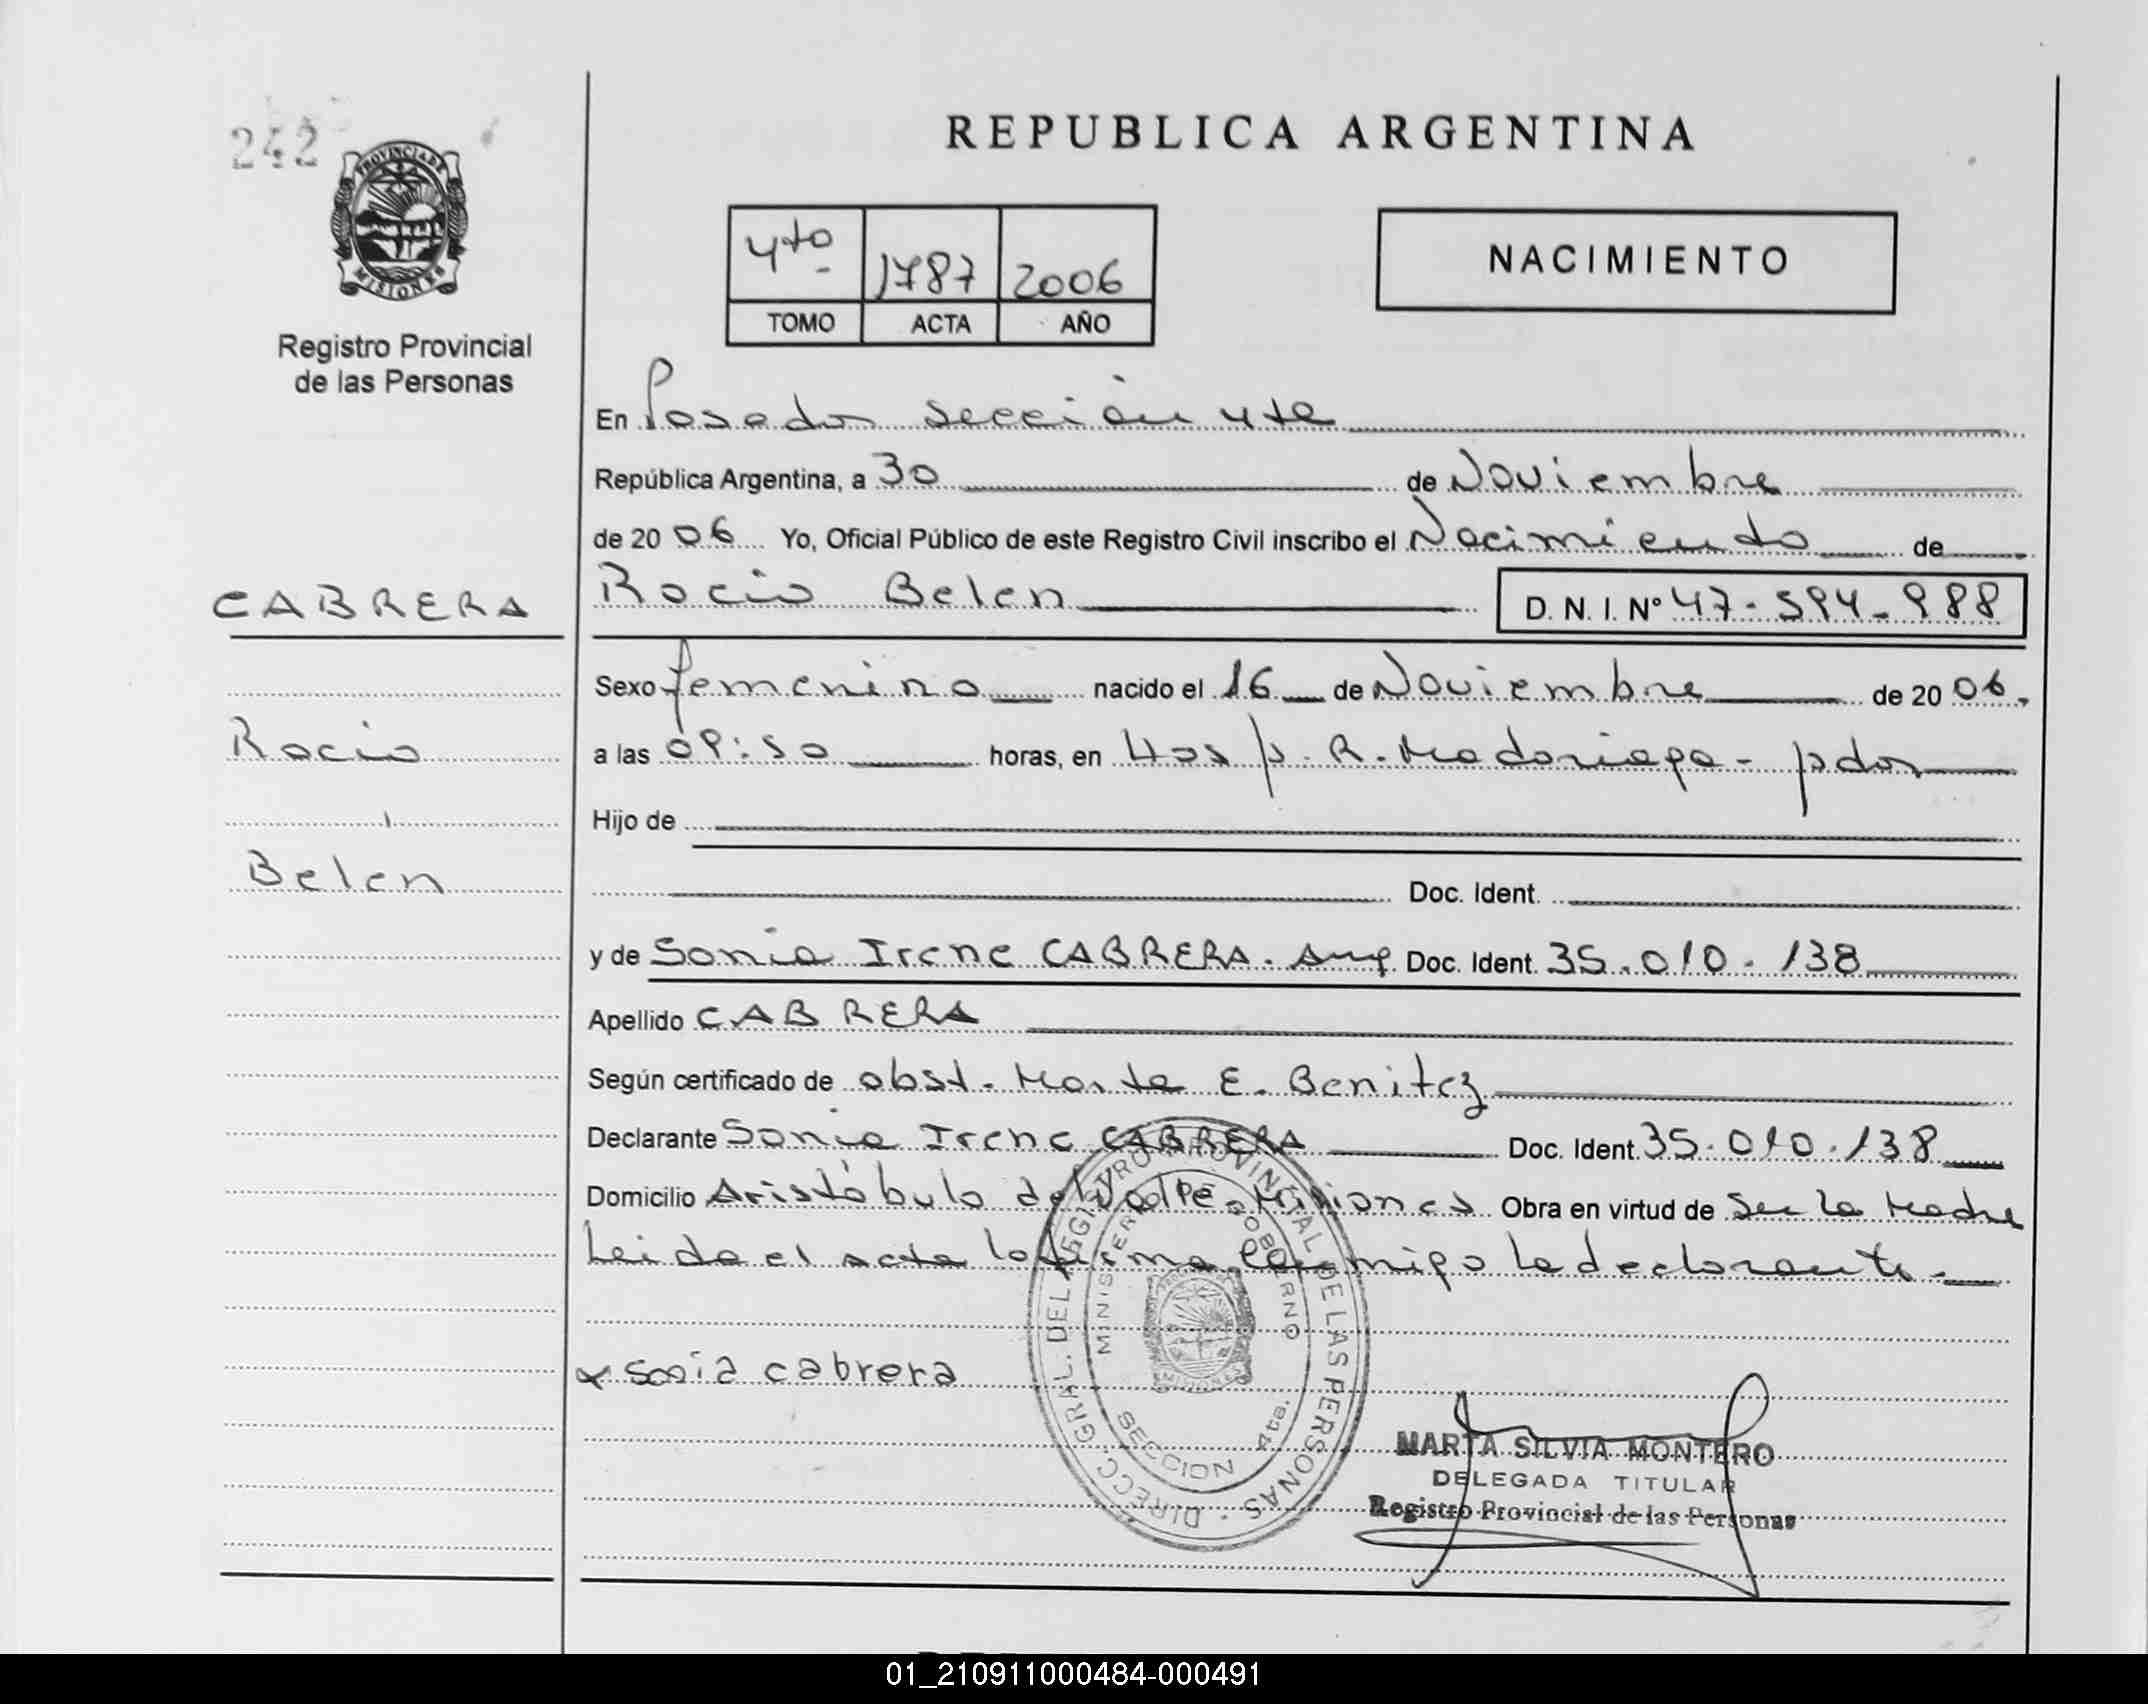 242
PROVINCIA DE
MISIONES
Registro Provincial
de las Personas
REPUBLICA ARGENTINA
4to 1787 2006
TOMO ACTA AÑO
NACIMIENTO
En Posadas sección 4ta
República Argentina, a 30 de Noviembre
de 20 06 Yo, Oficial Público de este Registro Civil inscribo el Nacimiento de
CABRERA
Rocio Belen D. N. I. Nº 47-594-988
Sexo femenino nacido el 16 de Noviembre de 20 06.
Rocio
a las 09:50 horas, en Hosp. R. Madariaga - pdas
Hijo de
Belén
Doc. Ident.
y de Sonia Irene CABRERA. Arg. Doc. Ident. 35.010.138
Apellido CABRERA
Según certificado de obst. Marta E. Benitez
Declarante Sonia Irene CABRERA Doc. Ident. 35.010.138
Domicilio Aristóbulo del Valle - Misiones Obra en virtud de Ser la Madre
Leida el acta la firma conmigo la declarante.
x sonia cabrera
DIRECC. GRAL. DEL REGISTRO PROVINCIAL DE LAS PERSONAS
MINISTERIO GOBIERNO
MISIONES
SECCION 4ta.
MARTA SILVIA MONTERO
DELEGADA TITULAR
Registro Provincial de las Personas
01_210911000484-000491